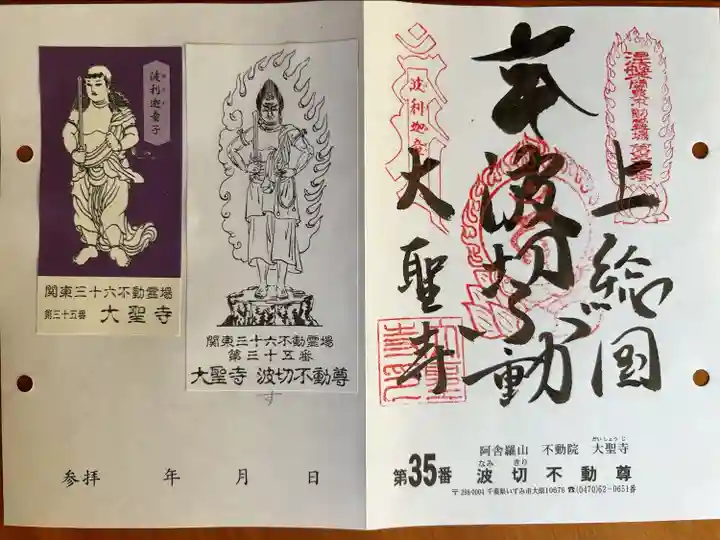 波利迦童子
関東三十六不動霊場
第三十五番 大聖寺
関東三十六不動霊場
第三十五番
大聖寺 波切不動尊
参拝 年 月 日
上総国
波切不動
大聖寺
阿舎羅山 不動院 大聖寺
だいしょうじ
なみ きり
第35番 波切不動尊
〒298-0004 千葉県いすみ市大原10676 ☎(0470)62-0651番